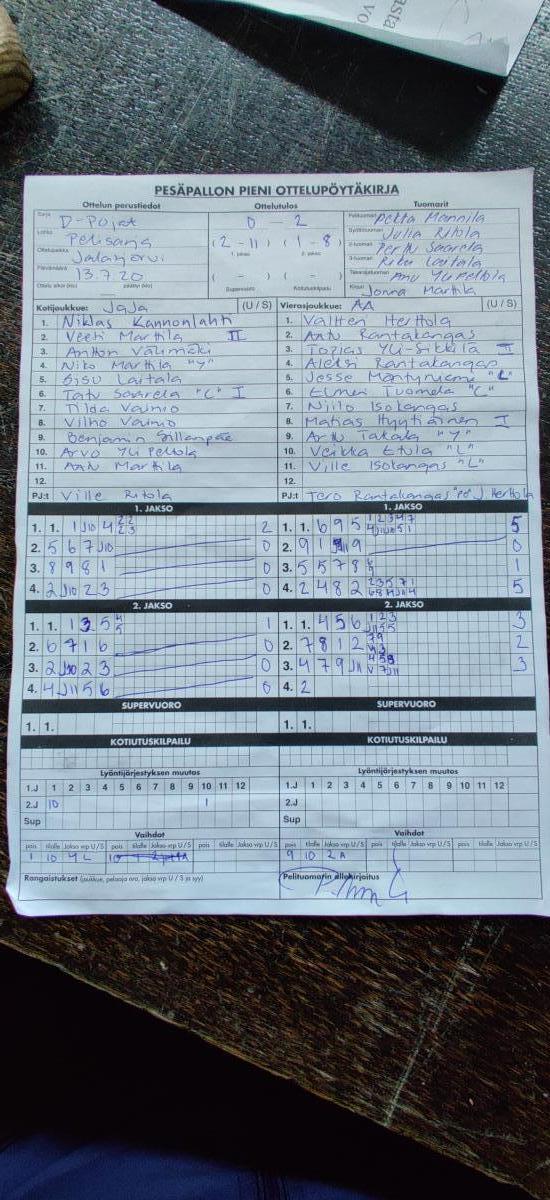 asta
vo
PESÄPALLON PIENI OTTELUPÖYTÄKIRJA
Ottelun perustiedot Ottelutulos Tuomarit
Sarja D-Pojat 0 - 2 Pelituomari Pekka Mannila
Lohko Pelisarja (2-11) (1-8) Syöttötuomari Julia Ritola
1. jakso 2. jakso
Ottelupaikka Jalasjärvi 2-tuomari Terhi Saarela
Päivämäärä 13.7.20 (-) (-) 3-tuomari Laitala
Ottelu alkoi (klo) päättyi (klo) Supervuoro Kotiutuskilpailu Takarajatuomari Anu Yli Peltola
Kirjuri Jonna Marttila
Kotijoukkue: JaJa (U / S) Vierasjoukkue: AA (U / S)
1. Niklas Kannonlahti 1. Valtteri Herttola
2. Veeti Marttila II 2. Antu Rantakangas
3. Anttoni Välimäki 3. Topias Yli-Sikkilä II
4. Niko Marttila "Y" 4. Aleksi Rantakangas
5. Sisu Laitala 5. Jesse Mäntyniemi "L"
6. Tatu Saarela "C" I 6. Elmeri Tuomela "C"
7. Tilda Vainio 7. Niilo Isokangas
8. Vilho Vainio 8. Matias Hyytiäinen I
9. Benjamin Sillanpää 9. Arttu Takala "Y"
10. Arvo Yli Peltola 10. Veikka Etula "L"
11. Antti Marttila 11. Ville Isokangas "L"
12. 12.
PJ:t Ville Ritola PJ:t Tero Rantakangas J Herttola
1. JAKSO 1. JAKSO
1. 1. 1 J10 4 2 2 2 3 2 1. 1. 6 9 5 5
2. 5 6 7 J10 0 2. 9 1 0
3. 8 9 8 1 0 3. 5 5 7 8 1
4. 2 J10 2 3 0 4. 2 4 8 2 5
2. JAKSO 2. JAKSO
1. 1. 1 3 5 4 5 1 1. 1. 4 5 6 3
2. 6 7 1 6 0 2. 7 8 1 2 2
3. 2 J10 2 3 0 3. 4 7 9 J11 3
4. 4 J11 5 6 0 4. 2
SUPERVUORO SUPERVUORO
1. 1. 1. 1.
KOTIUTUSKILPAILU KOTIUTUSKILPAILU
Lyöntijärjestyksen muutos Lyöntijärjestyksen muutos
1.J 1 2 3 4 5 6 7 8 9 10 11 12 1.J 1 2 3 4 5 6 7 8 9 10 11 12
2.J 10 1 2.J
Sup Sup
Vaihdot Vaihdot
pois tilalle Jakso vrp U / S pois tilalle Jakso vrp U / S pois pois tilalle Jakso vrp U / S pois tilalle Jakso vrp U / S pois
1 10 4 L 9 10 2 A
Rangaistukset (joukkue, pelaaja nro, jakso vrp U / S ja syy) Pelituomarin allekirjoitus